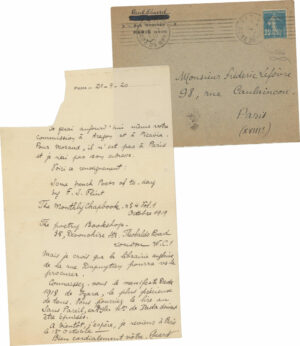 Paul Eluard
PARIS
Monsieur Frédéric Lefèvre
98, rue Caulaincourt
Paris
(XVIIIe)
Paris - 21-9-20
Je ferai aujourd'hui même votre
commission à Aragon et à Picabia.
Pour Morand, il n'est pas à Paris
et je n'ai pas son adresse.
Voici ce renseignement
Some French Poets of to-day
by F. S. Flint
The Monthly Chapbook. Vol. 1
Octobre 1919
The poetry Bookshop.
35, Devonshire St. Theobalds Road
London W.C.1
Mais je crois que la librairie
de la rue Dupuytren pourra vous le
procurer.
Connaissez-vous le manifeste Dada
1918 de Tzara, le plus
de tous. Vous pourrez le lire au
Sans Pareil, de Dada
être épuisés.
A bientôt, j'espère, je reviens à Paris
le octobre
Bien cordialement votre Eluard